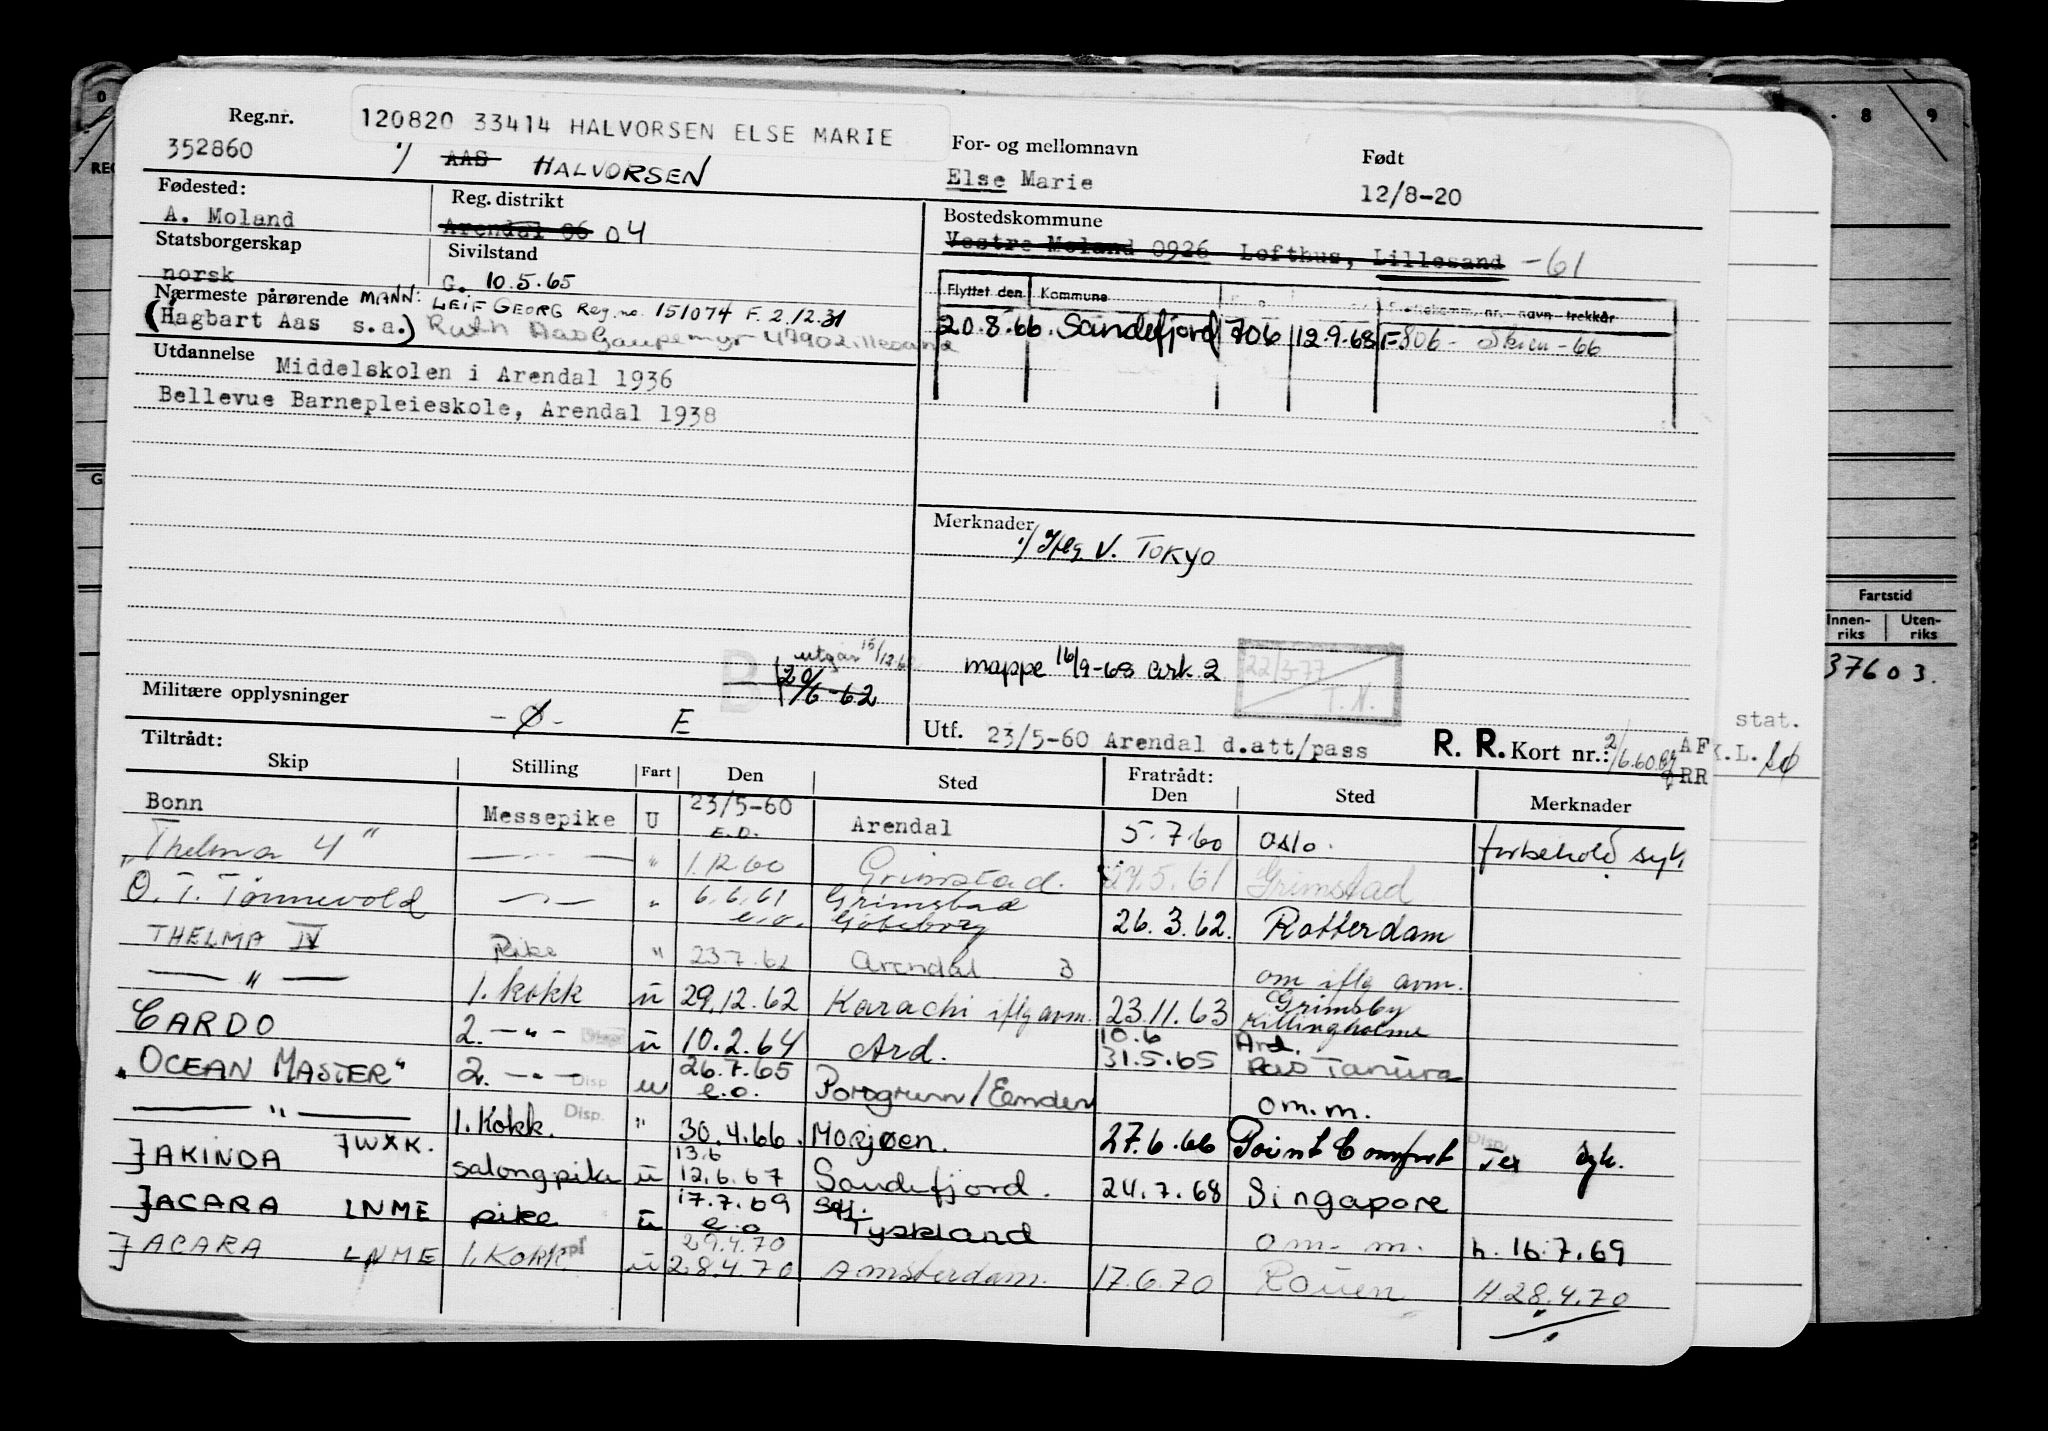 Reg.nr. 120820 33414 HALVORSEN ELSE MARIE For- og mellomnavn Født
352860 AAS HALVORSEN Else Marie 12/8-20
Fødested: Reg. distrikt Bostedskommune
A. Moland Arendal 06 04 Vestre Moland 0926 Lofthus, Lillesand -61
Statsborgerskap Sivilstand
norsk G. 10.5.65
Flyttet den Kommune
20.8.66. Sandefjord 706 12.9.68 F-806 - Skien -66
Nærmeste pårørende MANN: LEIF GEORG Reg.no. 151074 F. 2.12.31
(Hagbart Aas s.a.) Ruth Aas Gaupemyr 4790 Lillesand
Utdannelse Middelskolen i Arendal 1936
Bellevue Barnepleieskole, Arendal 1938
Merknader
1) Iflg V. TOKYO
utgår 15/12-62
B 20/6-62
mappe 16/9-68 ark. 2 22/3-77 T.N.
Militære opplysninger -Ø- E
Utf. 23/5-60 Arendal d.att/pass R. R. Kort nr.: 2/6.60 AF RR
Tiltrådt: Fratrådt:
Skip Stilling Fart Den Sted Den Sted Merknader
Bonn Messepike U 23/5-60 Arendal 5.7.60 Oslo. forbehold syk
"Thelma 4" — " — " E.O. 1.12.60 Grimstad. 27.5.61 Grimstad
O. T. Tønnevold — " — " 6.6.61 e.o. Grimstad Göteborg 26.3.62. Rotterdam
THELMA IV Pike " 23.7.62 Arendal om iflg avm.
— " — 1. kokk u 29.12.62 Karachi iflg avm. 23.11.63 Grimsby Killingholme
CARDO 2. — " — u 10.2.64 Ard. 10.6 31.5.65 Ard. Ras Tanura
"OCEAN MASTER" 2. — " — Disp u 26.7.65 e.o. Porsgrunn/Emden om.m.
— " — 1. Kokk. Disp. " 30.4.66. Mosjøen. 27.6.66 Point Comfort Disp. syk.
JAKINDA JWXK. salongpike u 13.6 12.6.67 Sandefjord. 24.7.68 Singapore
JACARA LNME pike u 17.7.69 e.o Tyskland om. m. h. 16.7.69
JACARA LNME 1. Kokk u 29.4.70 28.4.70 Amsterdam. 17.6.70 Rouen H. 28.4.70
8 9
Fartstid
Innen-riks Uten-riks
37603.
stat.
K.L.